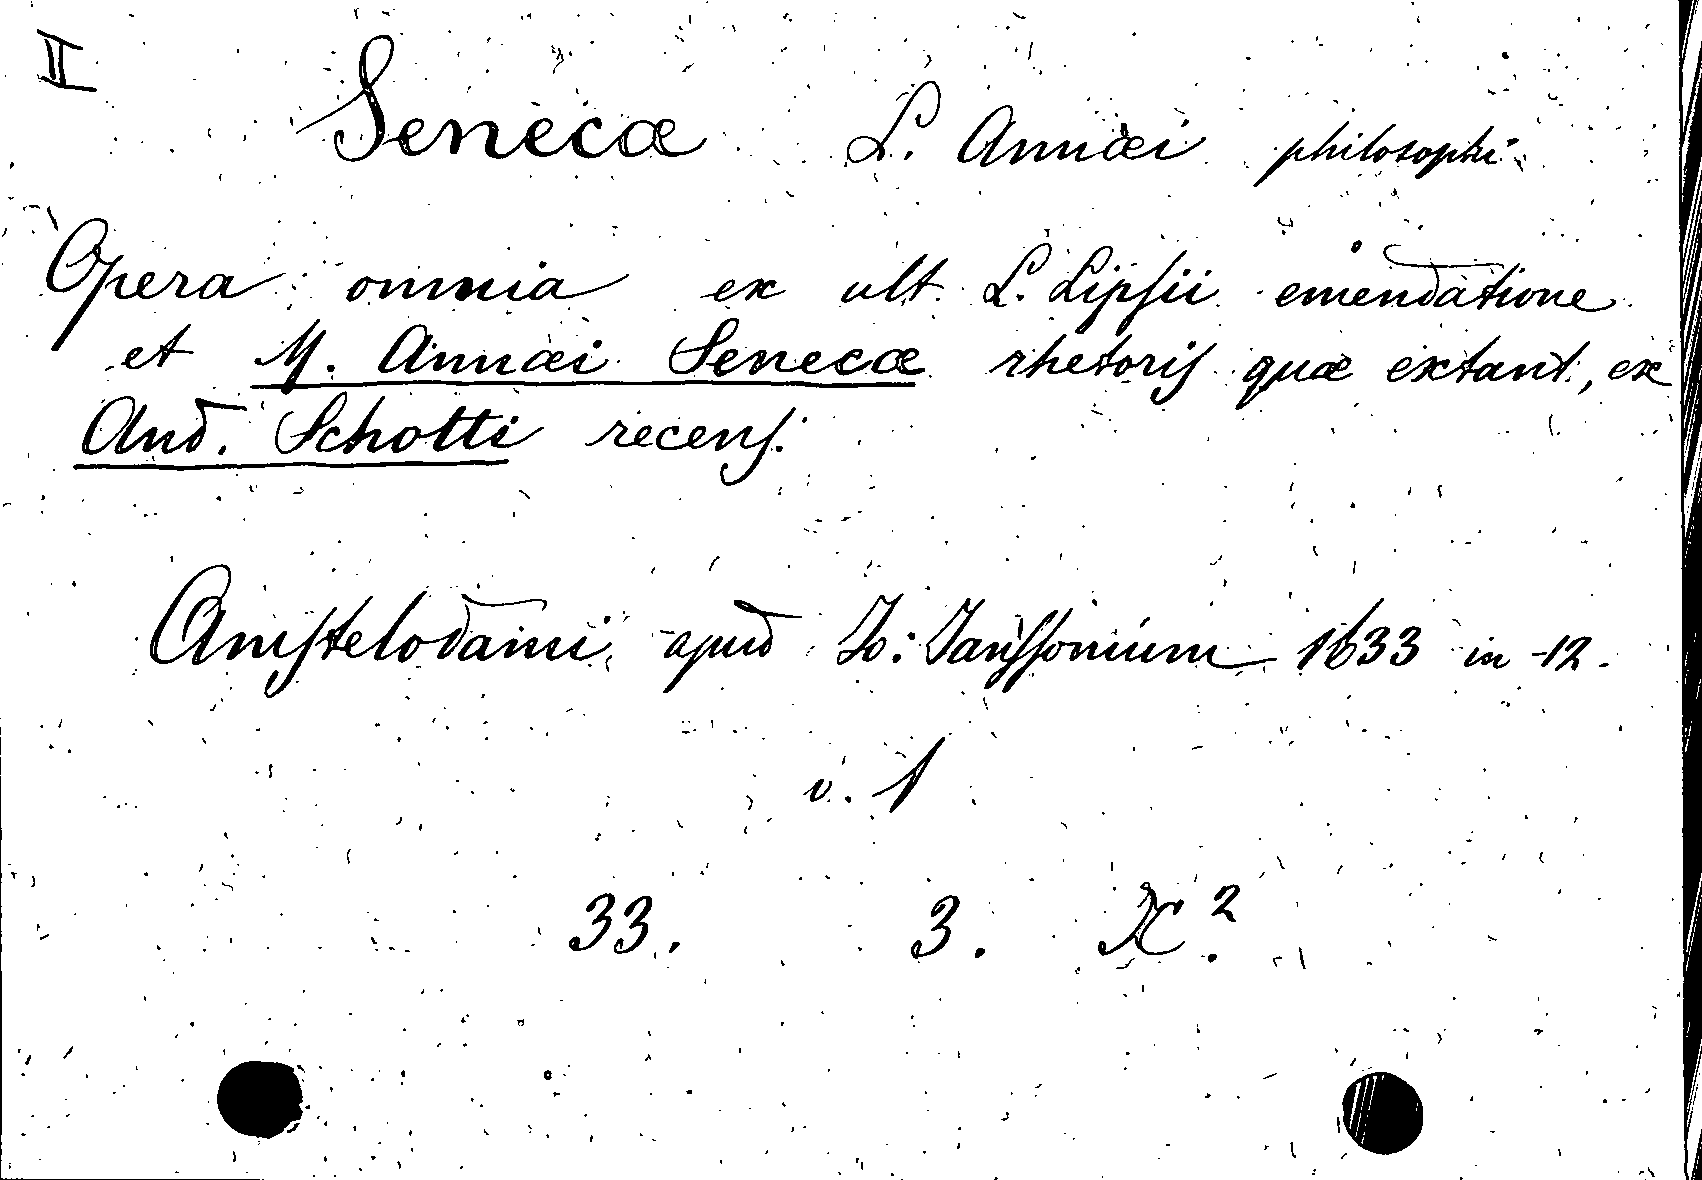 II
Senecæ L. Annæi philosophi
Opera omnia ex ult. L. Lipsii emendatione
et M. Annæi Senecæ rhetoris quæ extant, ex
And. Schotti recens.
Amstelodami, apud Jo: Janssonium 1633 in -12.
v. 1
33. 3. X².